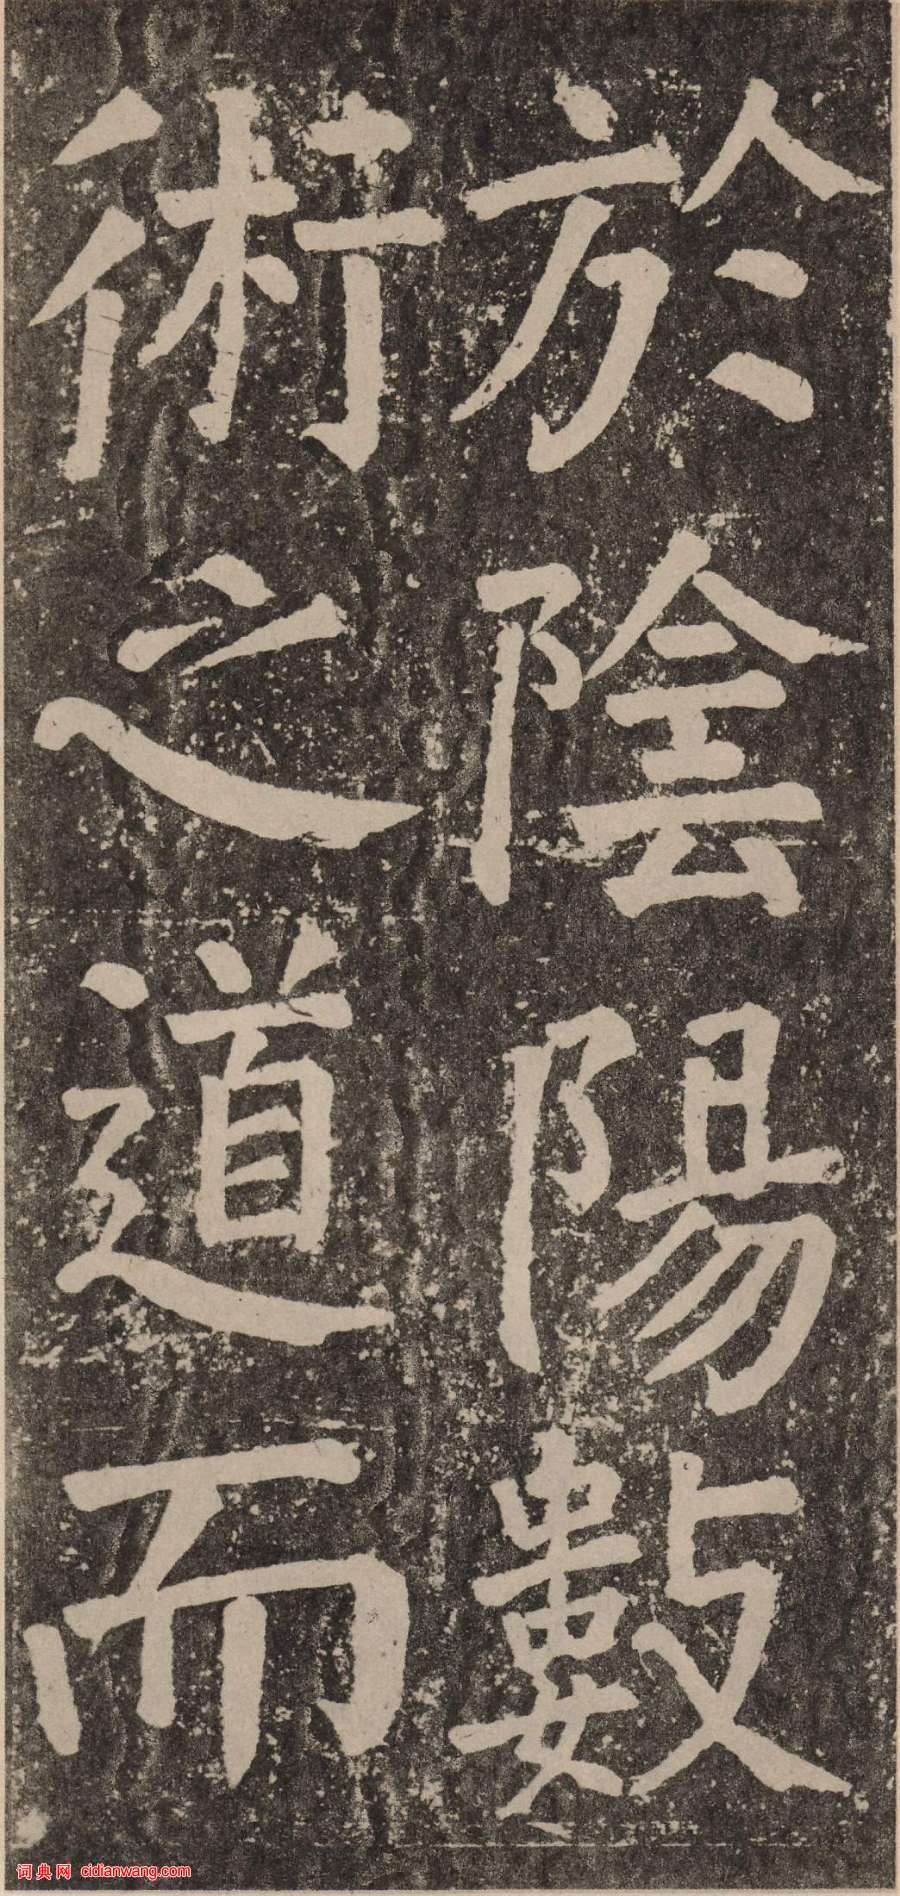 於陰陽數
術之道而
词典网 cidianwang.com